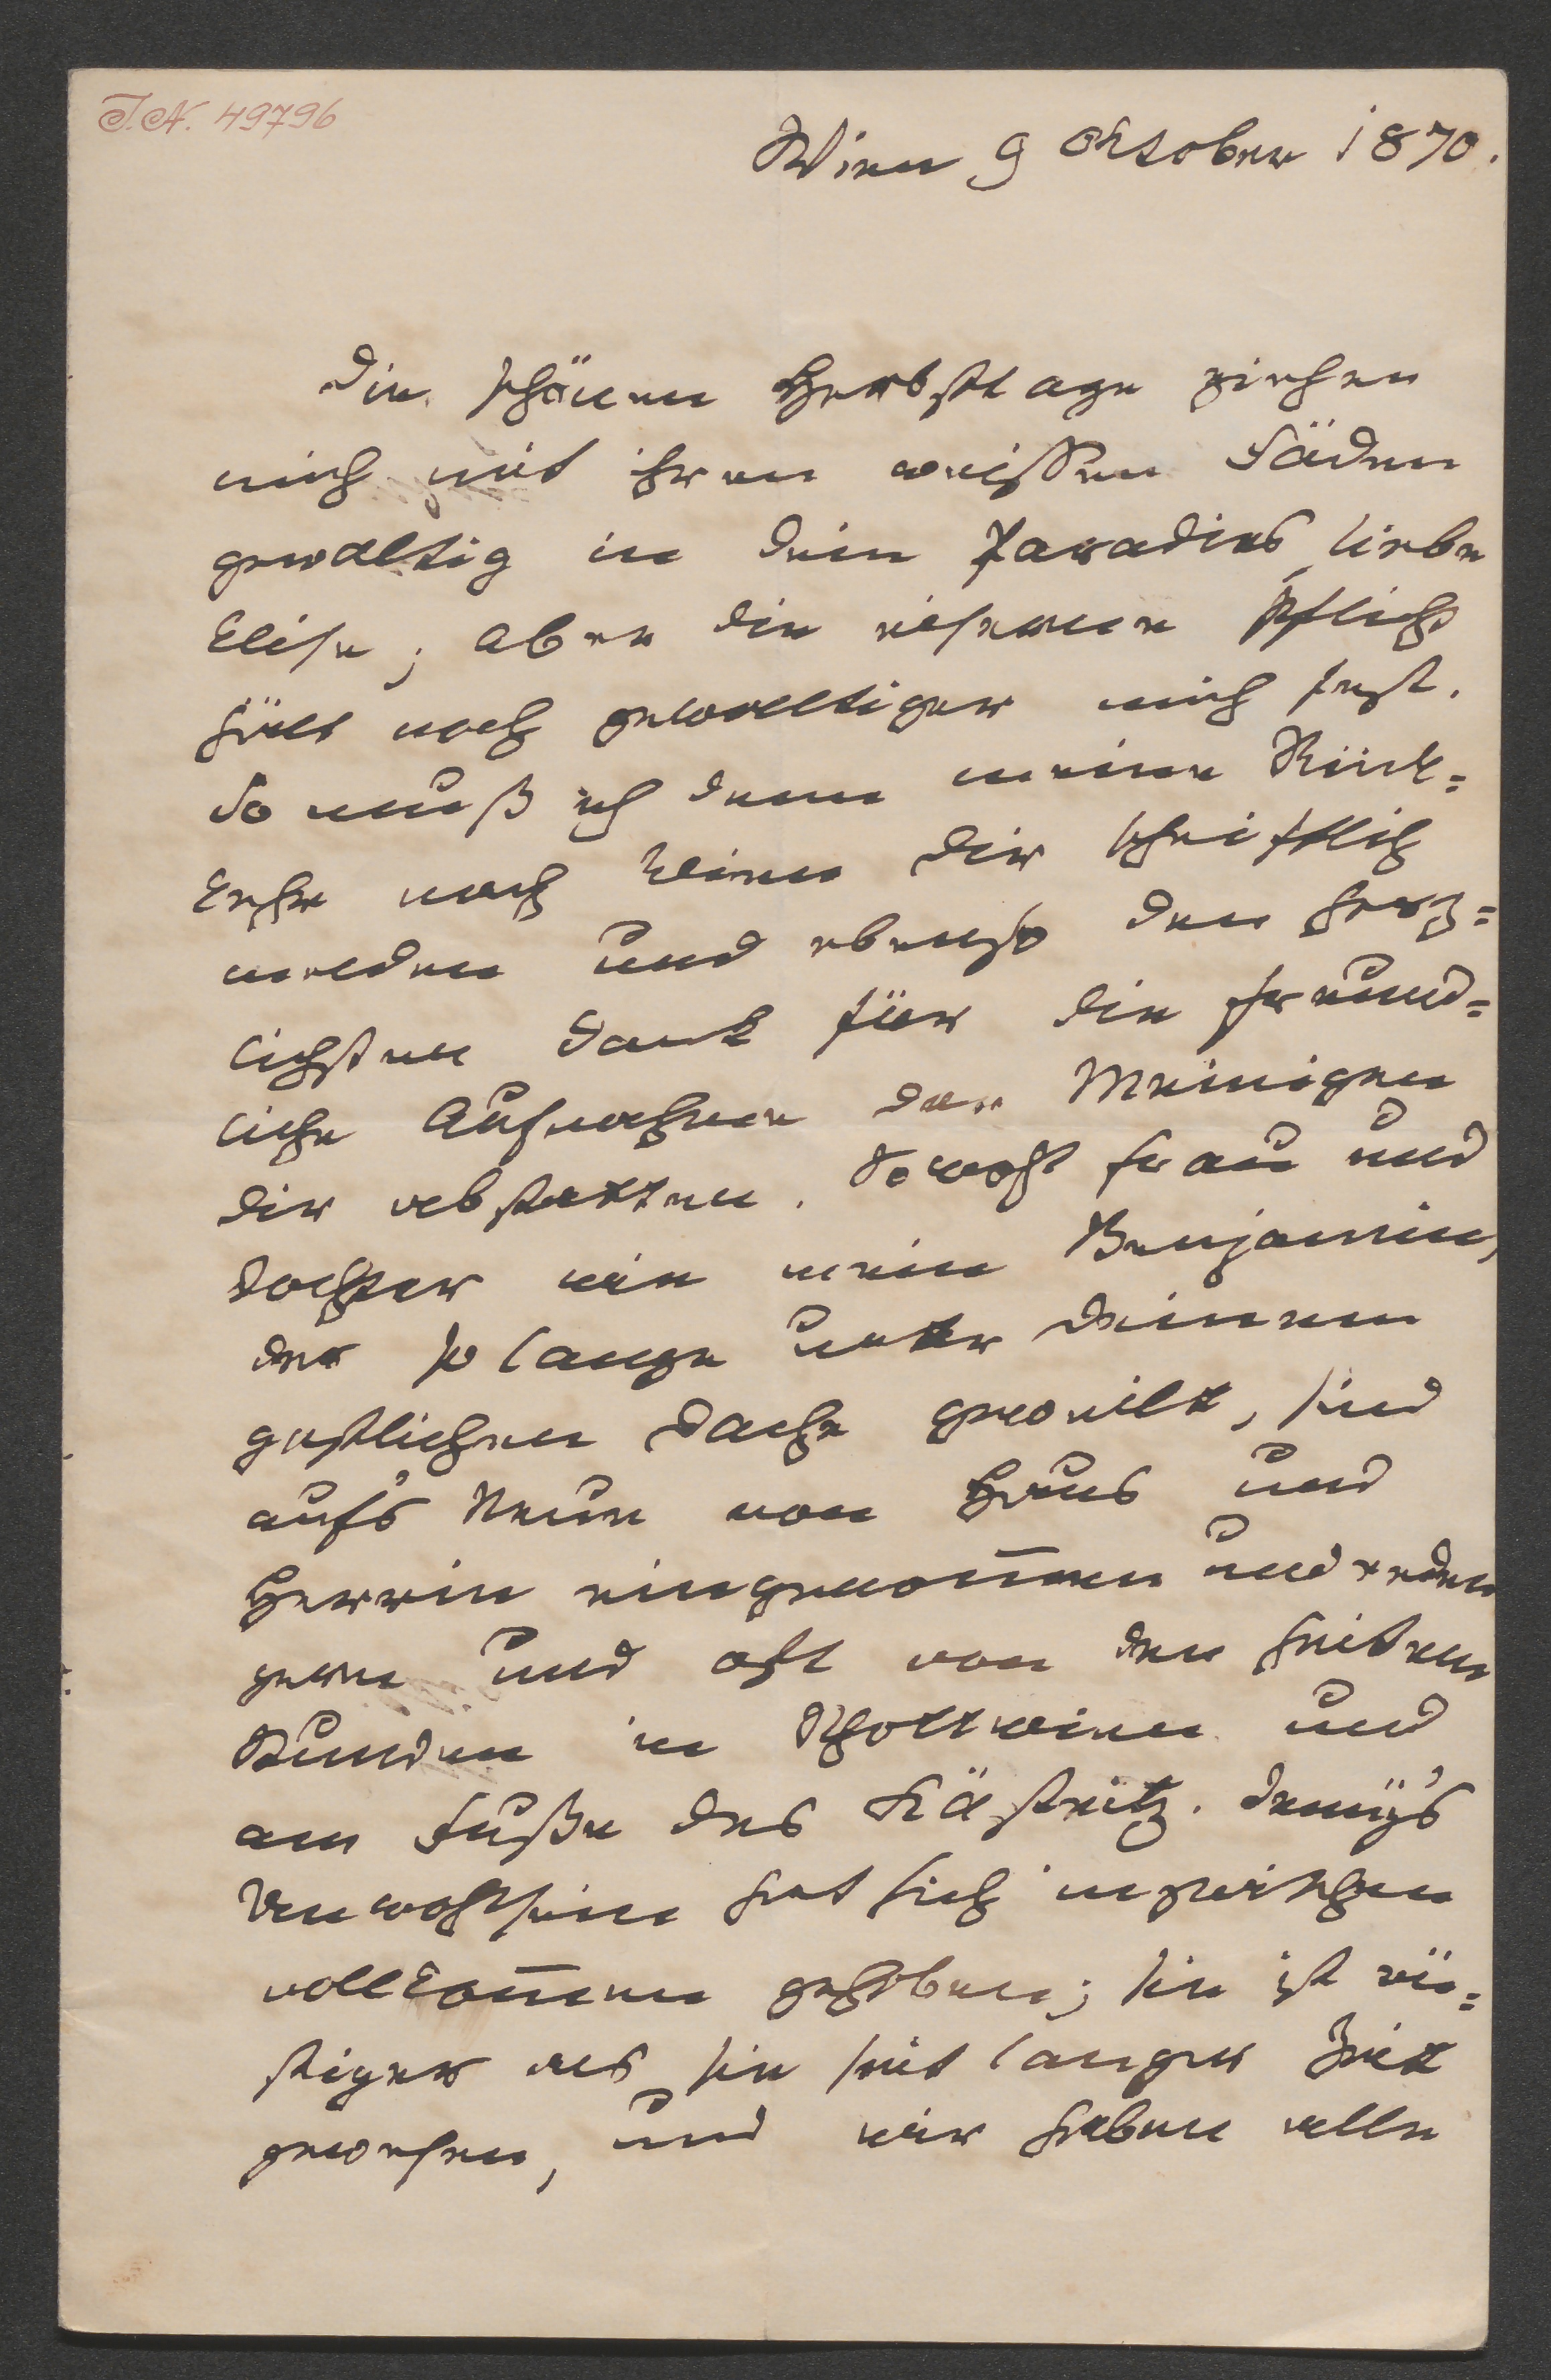 I.N. 49796
Wien 9 Oktober 1870.
Die schönen Herbsttage ziehen
mich mit ihren weissen Fäden
gewaltig in dein Paradies, liebe
Elise; aber die eiserne Pflicht
hält noch gewaltiger mich fest.
So muß ich denn meine Rück=
kehr nach Wien dir schriftlich
melden und ebenso den herz=
lichsten Dank für die freund=
liche Aufnahme der Meinigen
dir abstatten. Sowohl Frau und
Tochter wie mein Benjamin,
der so lange unter deinem
gastlichen Dache geweilt, sind
aufs Neue von Haus und
Herrin eingenom̄en und reden
gern und oft von den heitern
Stunden in Schottwien und
am Fuße des Gästritz. Jenny's
Unwohlsein hat sich inzwischen
vollkom̄en gehoben; sie ist rü=
stiger als sie seit langer Zeit
gewesen, und wir haben alle